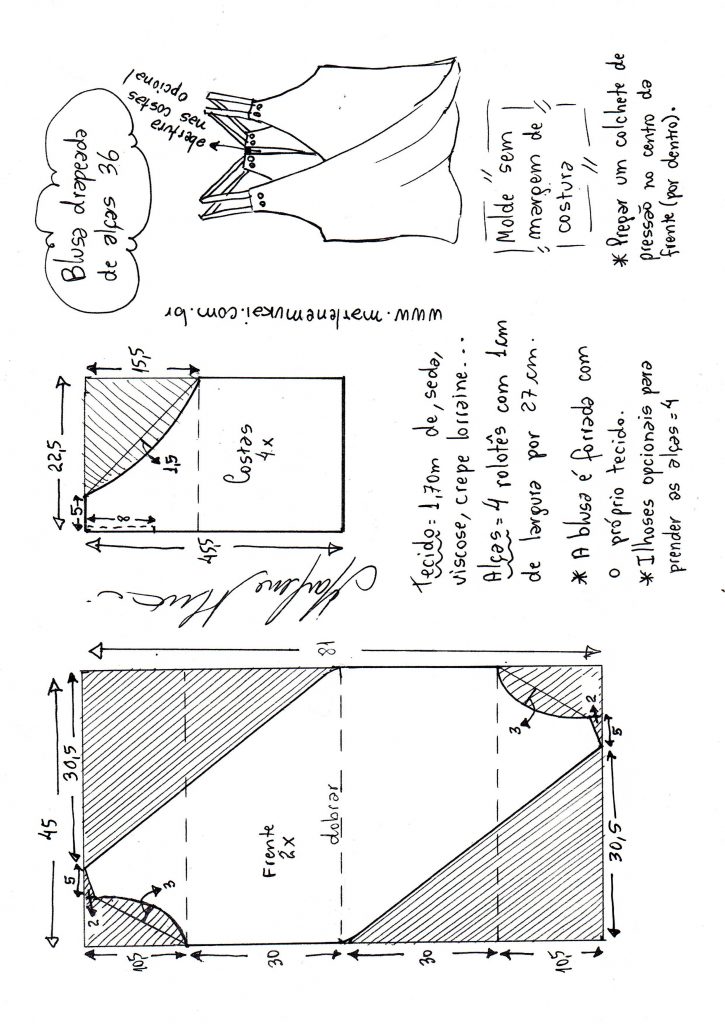 Blusa drapeada
de alças 36
abertura
nas costas
opcional
Molde sem
margem de
costura
* Pregar um colchete de
pressão no centro da
frente (por dentro).
www.marlenemukai.com.br
22,5
5
8
15,5
1,5
45,5
Costas
4x
Tecido = 1,70m de, seda,
viscose, crepe lorraine...
Alças = 4 rolotês com 1cm
de largura por 27 cm.
* A blusa é forrada com
o próprio tecido.
* Ilhoses opcionais para
prender as alças = 4
Marlene Mukai
45
30,5
5
2
3
81
Frente
2x
dobrar
3
2
5
30,5
10,5
30
30
10,5